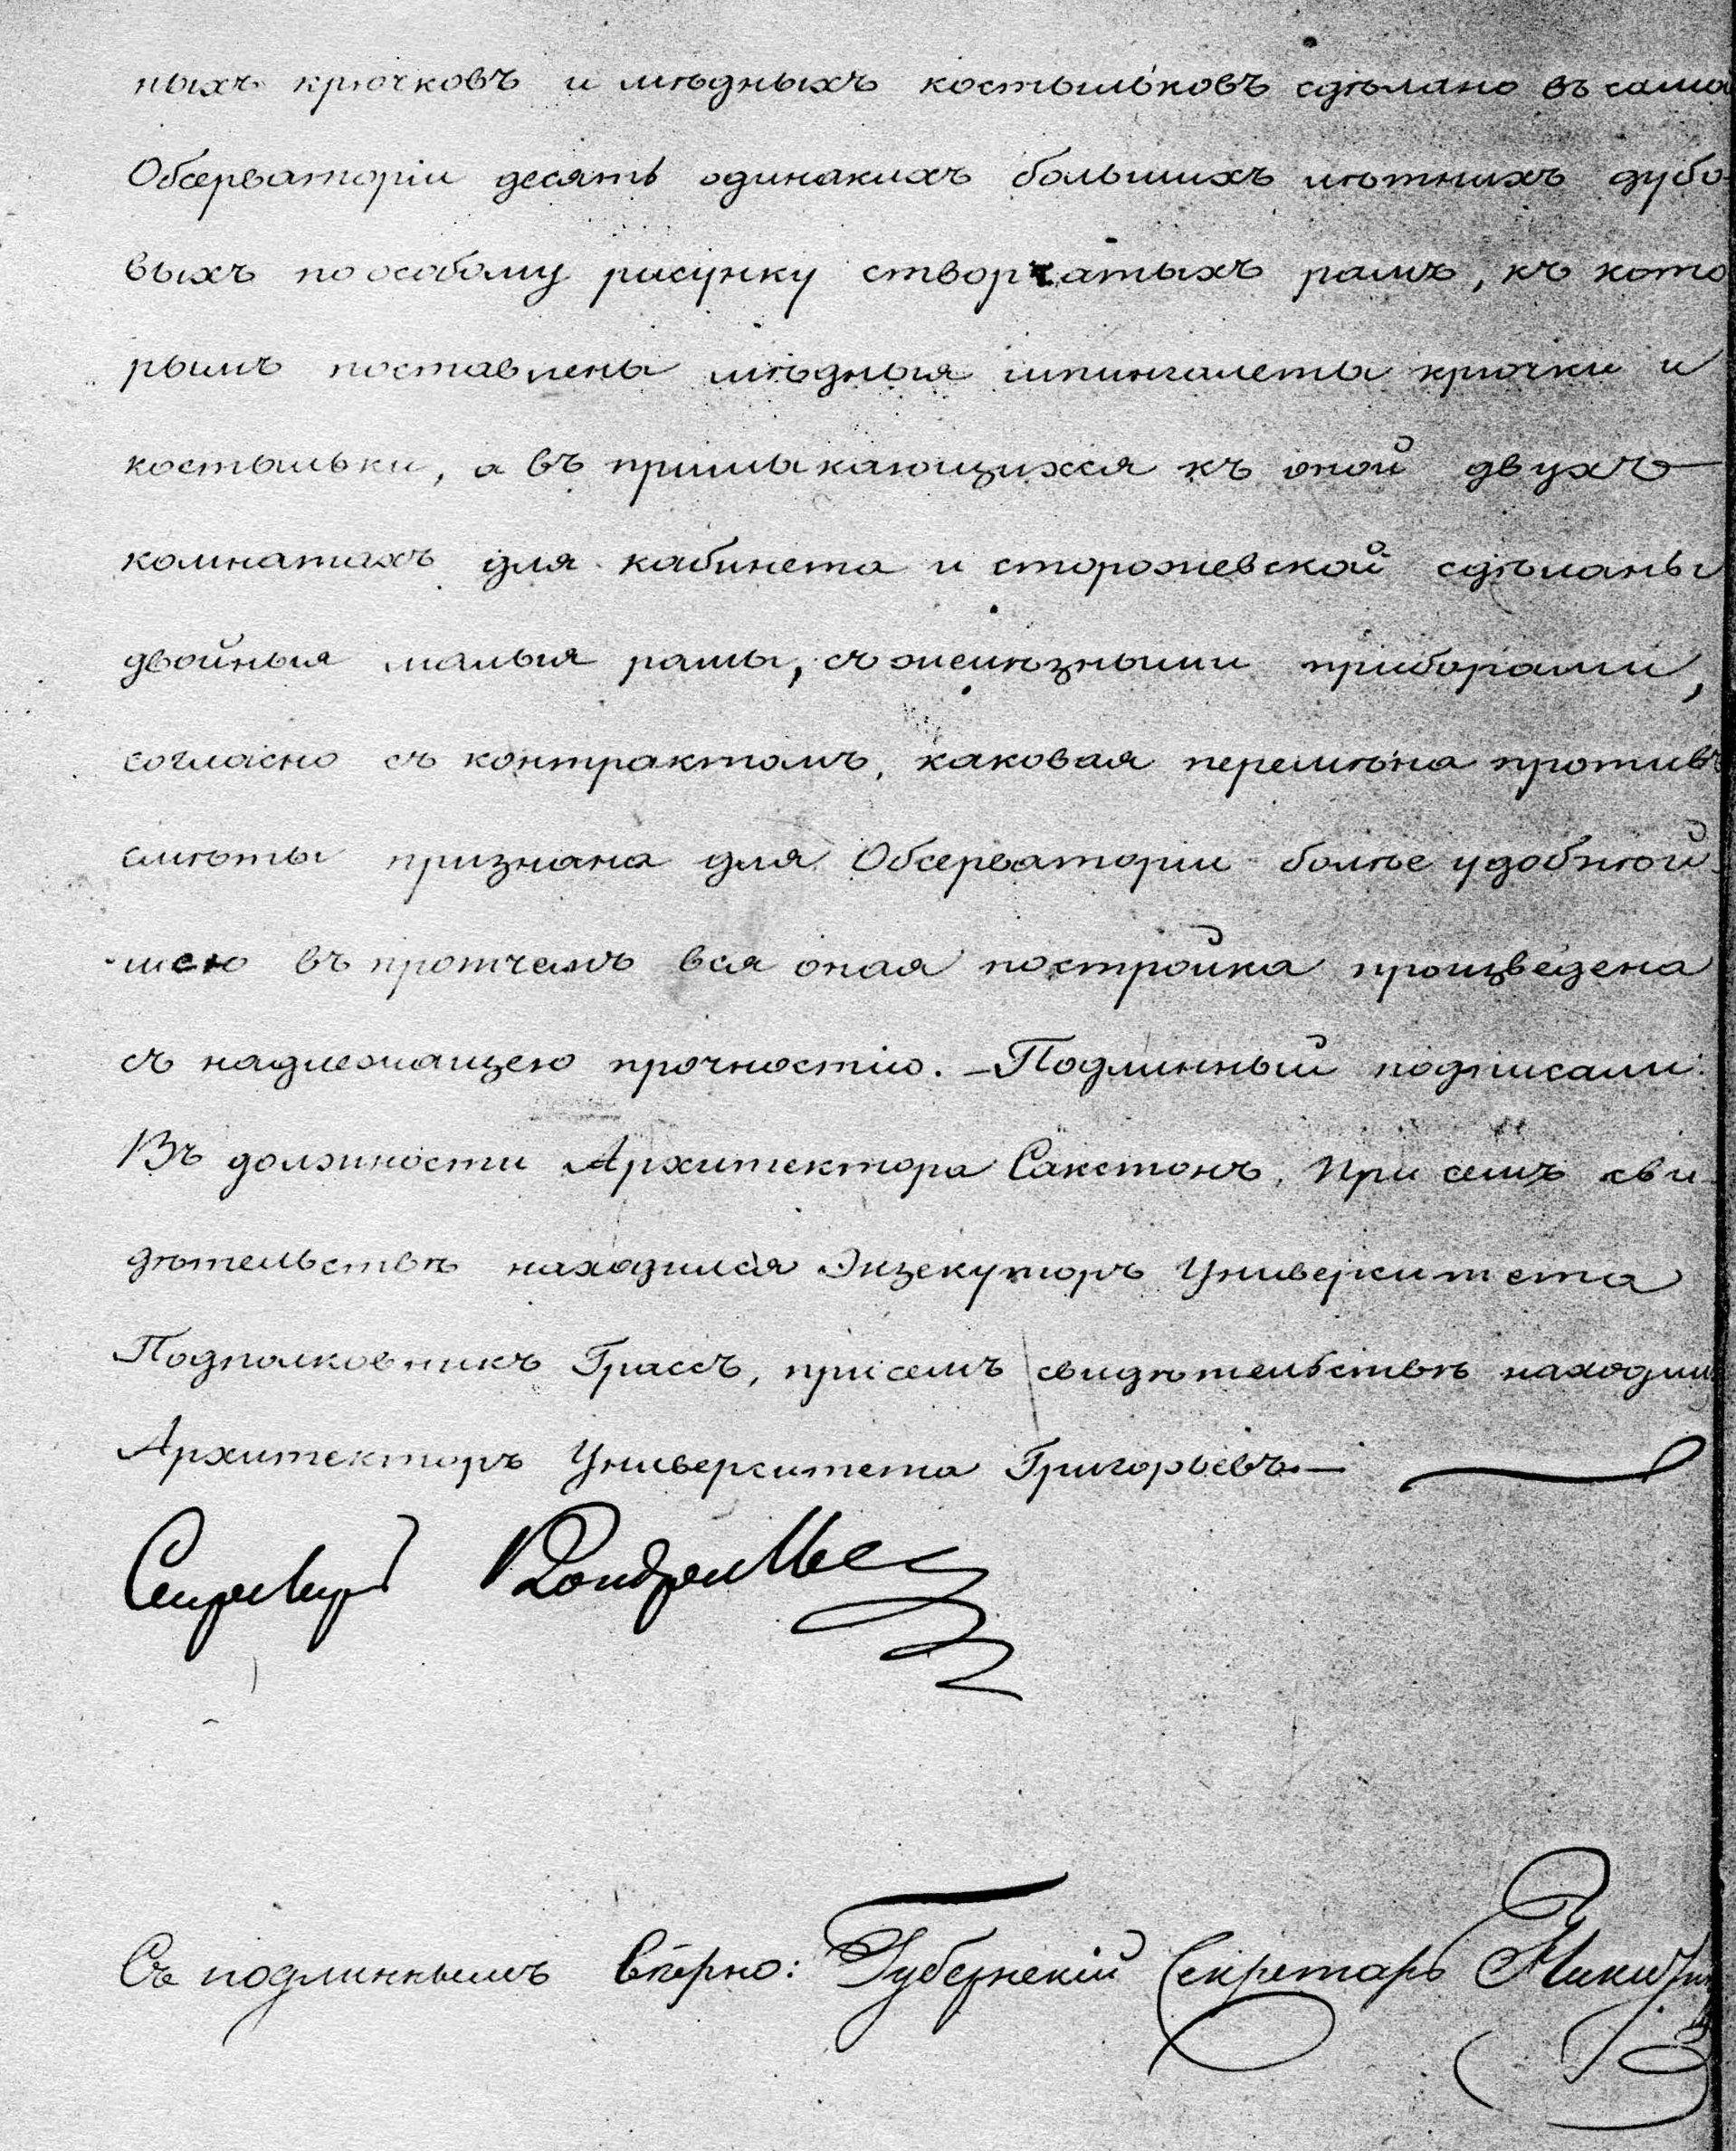 ныхъ крючковъ и мѣдныхъ костыльковъ сдѣлано въ само
Обсерваторіи десять одинакихъ большихъ лѣтнихъ дубо-
выхъ по особому рисунку створчатыхъ рамъ, къ кото
рымъ поставлены мѣдныя шпингалеты крючки и
костыльки, а въ примыкающихся къ оной двухъ
комнатахъ для кабинета и сторожевской сдѣланы
двойныя малыя рамы, съ желѣзными приборами,
согласно съ контрактомъ, каковая перемѣна противъ
смѣты признана для Обсерваторіи болѣе удобнѣй
шею въ протчемъ вся оная постройка произведена
съ надлежащею прочностію. - Подлинный подписали:
Въ должности Архитектора Сакстонъ. При семъ сви
дѣтельствѣ находился Экзекуторъ Университета
Подполковникъ Грассъ, при семъ свидѣтельствѣ находил
Архитекторъ Университета Григорьевъ. —
Съ подлиннымъ вѣрно: Губернскій Секретарь